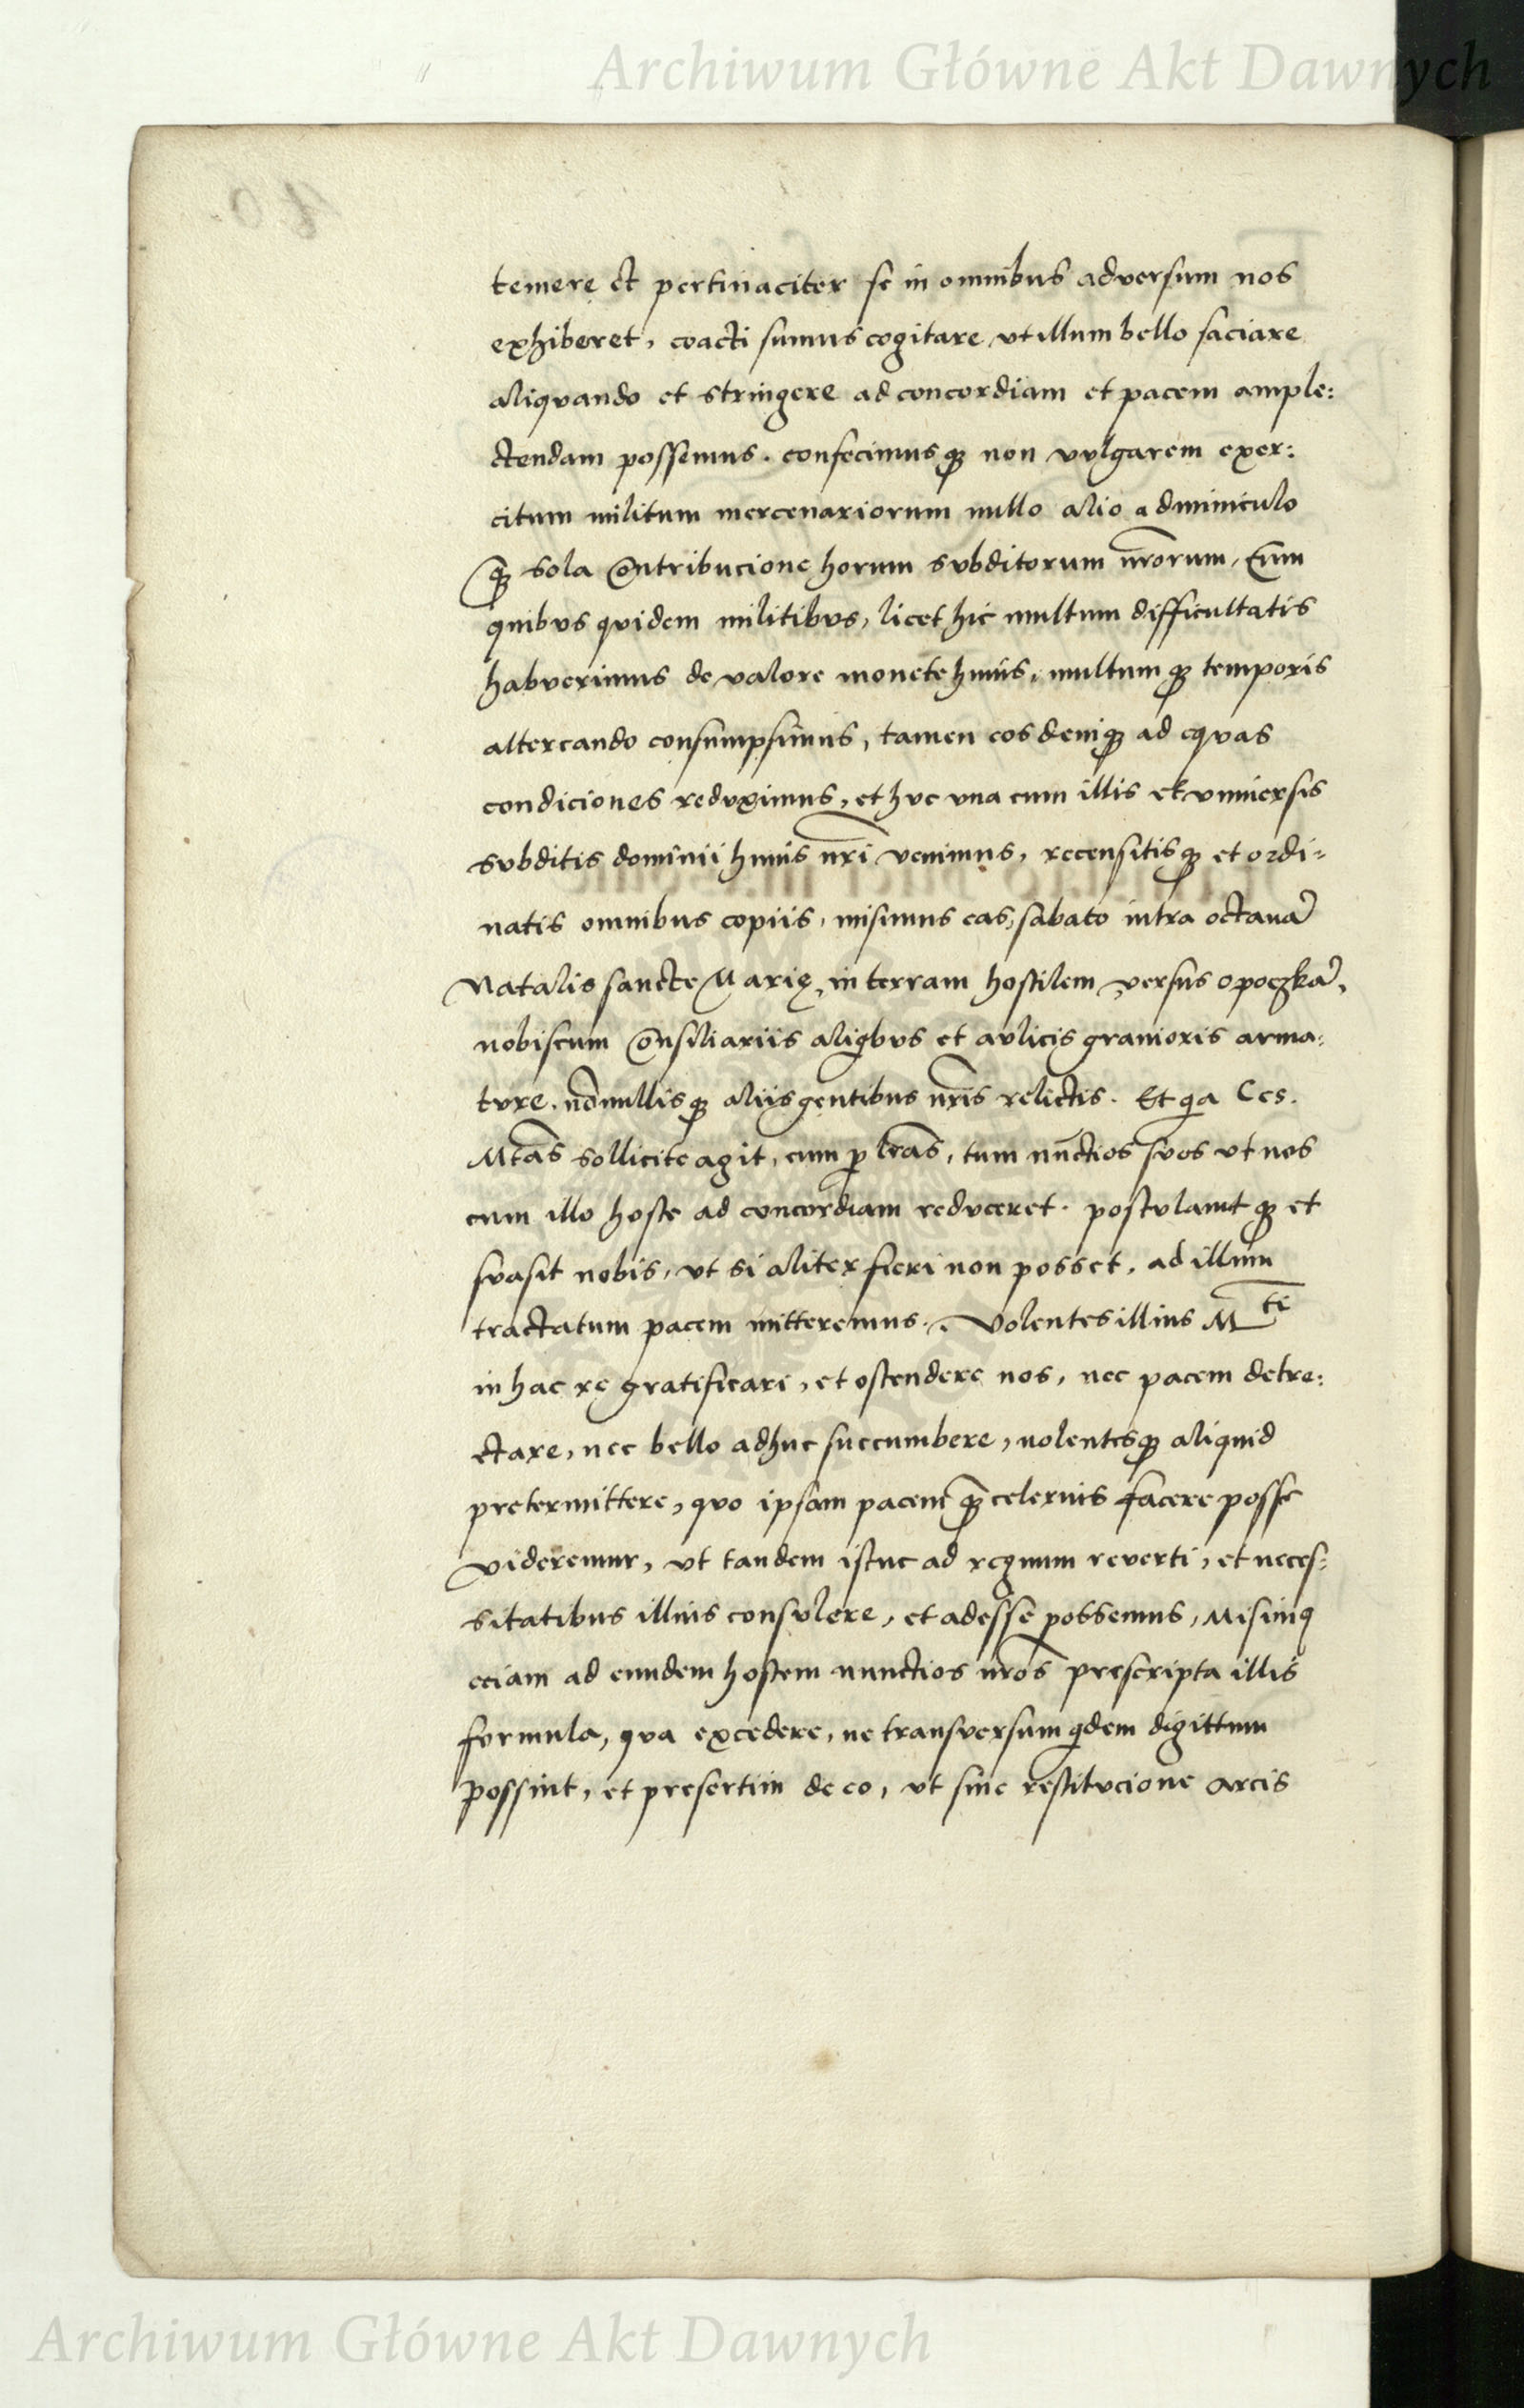 Archiwum Główne Akt Dawnych
temere et pertinaciter se in omnibus adversum nos
exhiberet, coacti sumus cogitare ut illum bello saciare
aliqvando et stringere ad concordiam et pacem ample:
ctendam possemus. confecimusq₃ non vulgarem exer:
citum militum mercenariorum nullo alio adminiculo
q̃₃ sola contribucione horum svbditorum nr̃orum, Cum
quibvs qvidem militibvs, licet hic multum difficultatis
habverimus de valore monete huius, multumq₃ temporis
altercando consumpsimus, tamen eos deniq₃ ad eqvas
condiciones redvximus, et hvc vna cum illis et vniversis
svbditis dominii huius nr̃i venimus, recensitisq₃ et ordi-
natis omnibus copiis, misimus eas, sabato intra octauã
Natalis sancte Marię, in terram hostilem versus opoczkã,
nobiscum consiliariis aliqbvs et avlicis grauioris arma:
tvre, nõnullisq₃ aliis gentibus nr̃is relictis. Et qa Ces.
Mtas̃ sollicite agit, cum p lr̃as, tum nũctios svos vt nos
cum illo hoste ad concordiam redvceret. postvlauitq₃ et
svasit nobis, vt si aliter fieri non posset, ad illum
tractatum pacem mitteremus. Volentes illius Mti
in hac re gratificari, et ostendere nos, nec pacem detre:
ctare, nec bello adhuc succumbere, nolentesq₃ aliquid
pretermittere, qvo ipsam pacem q̃₃ celerius facere posse
videremur, vt tandem istuc ad regnum reverti, et neces:
sitatibus illius consvlere, et adesse possemus, Misimq
eciam ad eundem hostem nunctios nr̃os prescripta illis
formula, qva excedere, ne transversum qdem digittum
possint, et presertim de eo, vt sine restitvcione arcis
Archiwum Główne Akt Dawnych